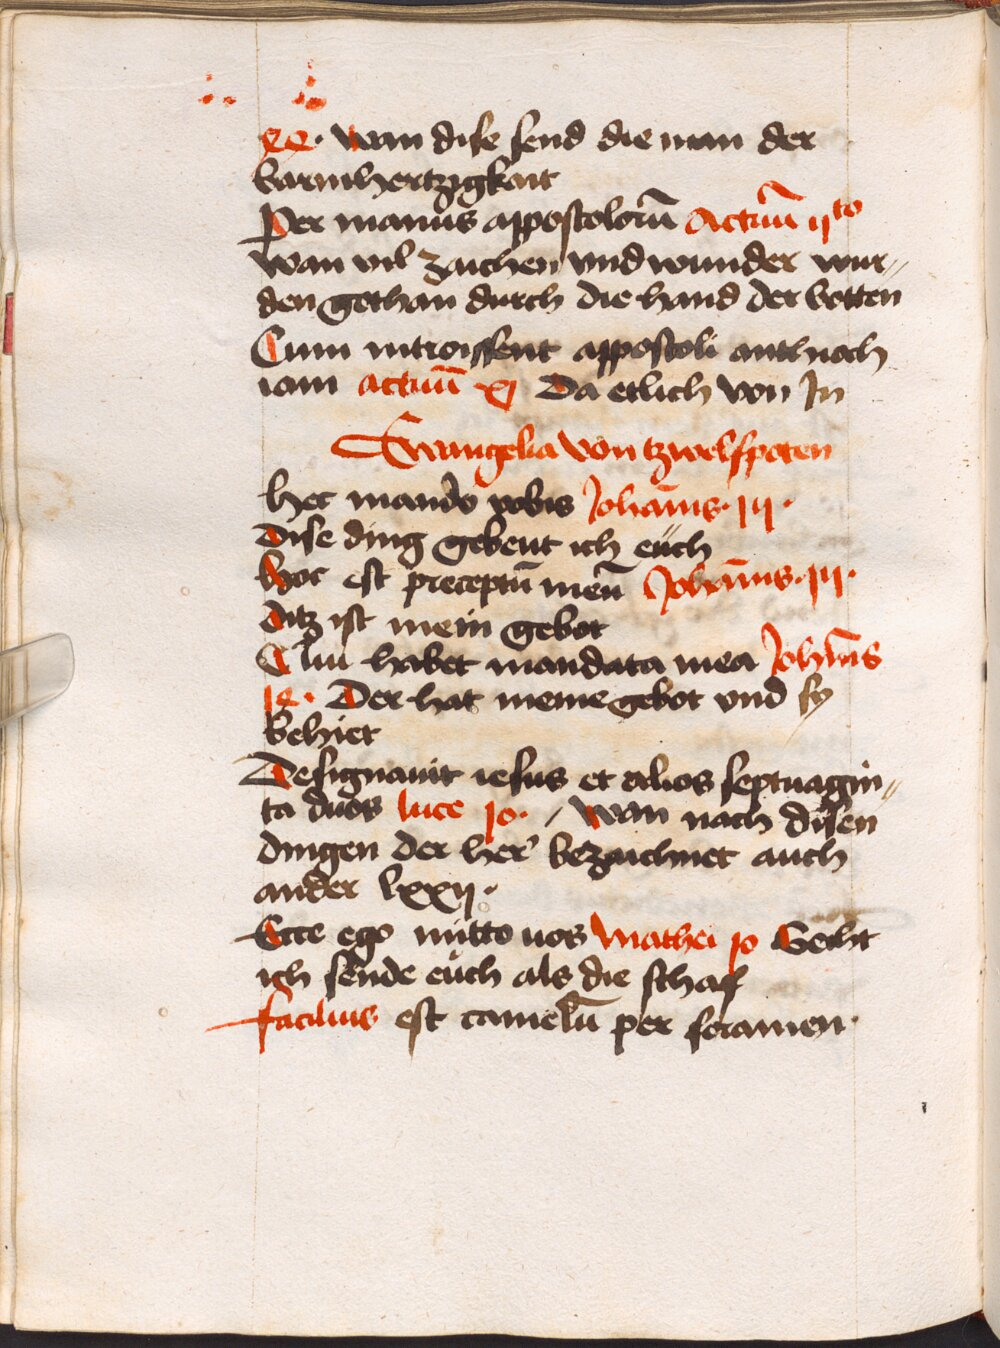 Wan dise send die man der
barmhertzigkait
Per manus appostolorū Actuū iito
Wan vil zaichen vnd wunder wur„
den gethan durch die hand der botten
Cum introissent appostoli anthioch
iam actuū xi Da etlich von In
Ewangelia von tzwelfpoten
hec mando vobis Johānis
Dise ding gebeut ich eüch
hoc est preceptū meū Johānis
Ditz ist mein gebot
Qui habet mandata mea Johānis
Der hat meine gebot vnd sy
behiet
Designauit iesus et alios septuagin„
ta duos luce 10 / Wan nach disen
dingen der her bezaichnet auch
ander lxxij.
Ecce ego mitto uos Mathei 10 Secht
ich sende eüch als die schaf
facilius est camelū per foramen.